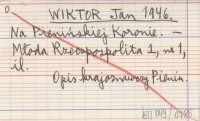 WIKTOR Jan 1946.
Na Pienińskiej Koronie. –
Młoda Rzeczpospolita 1, nr 1,
il.
Opis krajoznawczy Pienin.